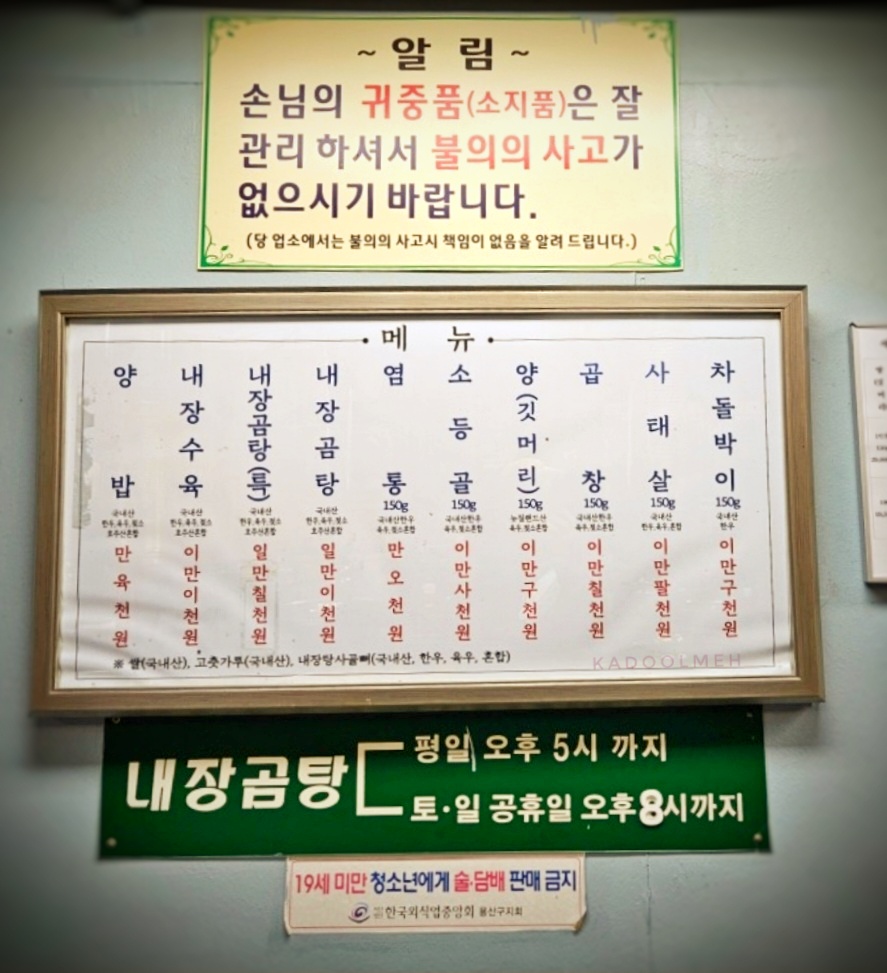 ~ 알 림 ~
손님의 귀중품(소지품)은 잘
관리 하셔서 불의의 사고가
없으시기 바랍니다.
(당 업소에서는 불의의 사고시 책임이 없음을 알려 드립니다.)
• 메 뉴 •
양밥 국내산 한우,육우,젖소 호주산혼합 만육천원
내장수육 국내산 한우,육우,젖소 호주산혼합 이만이천원
내장곰탕(특) 국내산 한우,육우,젖소 호주산혼합 일만칠천원
내장곰탕 국내산 한우,육우,젖소 호주산혼합 일만이천원
염통 150g 국내산한우 육우,젖소혼합 만오천원
소등골 150g 국내산한우 육우,젖소혼합 이만사천원
양(깃머리) 150g 뉴질랜드산 육우,젖소혼합 이만구천원
곱창 150g 국내산한우 육우,젖소혼합 이만칠천원
사태살 150g 국내산 한우,육우,젖소 이만팔천원
차돌박이 150g 국내산 한우 이만구천원
※ 쌀(국내산), 고춧가루(국내산), 내장탕사골뼈(국내산, 한우, 육우, 혼합)
KADOOLMEH
내장곰탕
평일 오후 5시 까지
토·일 공휴일 오후8시까지
19세 미만 청소년에게 술·담배 판매 금지
한국외식업중앙회 용산구지회